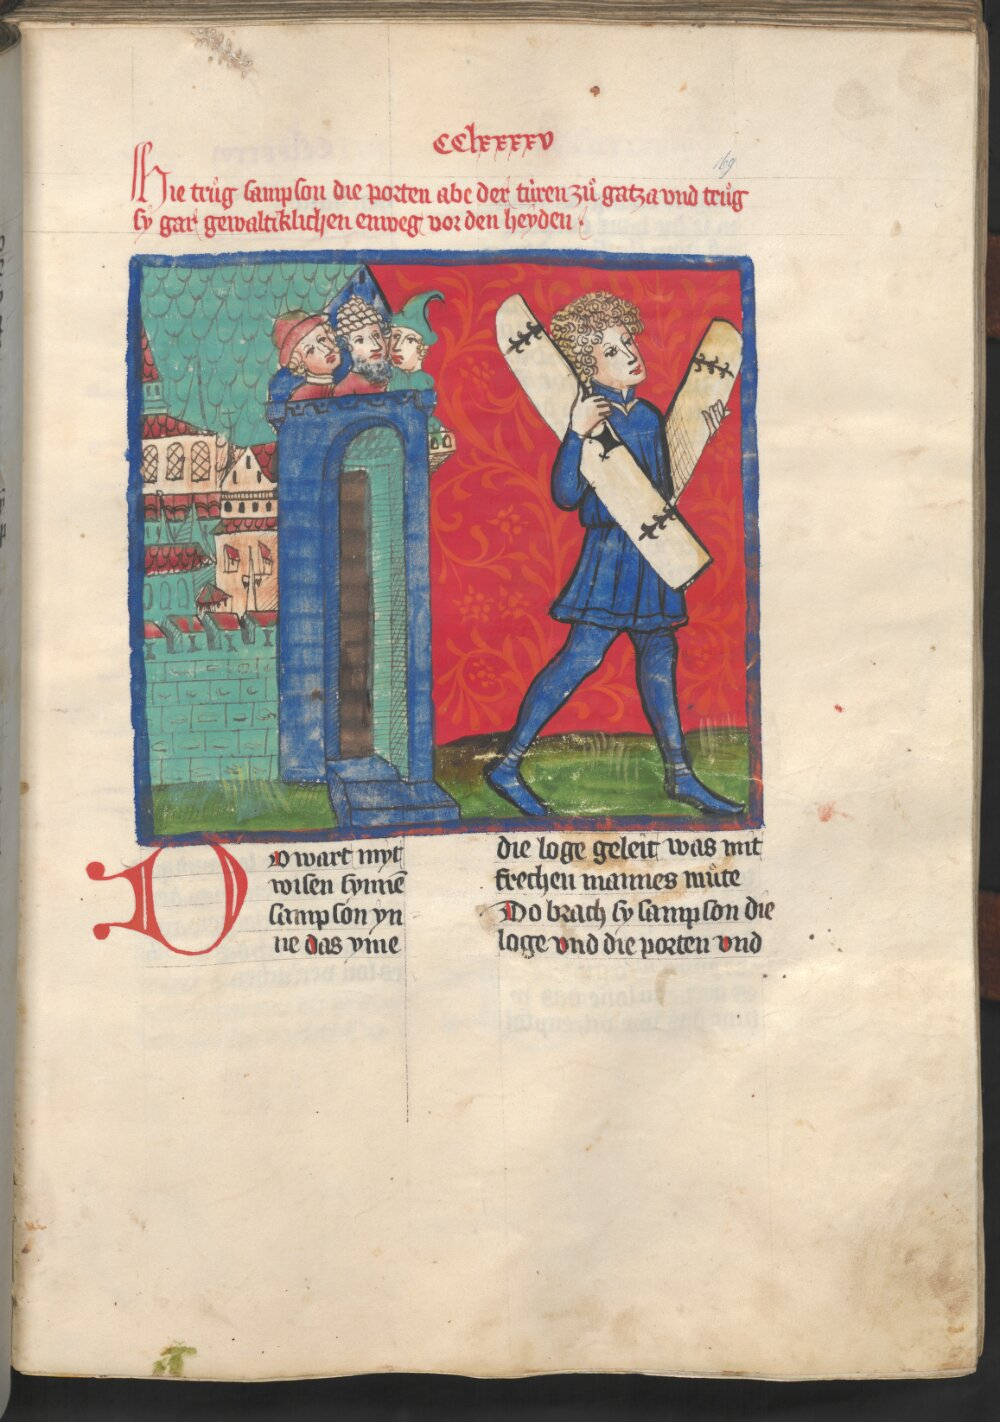 CClxxxxv
169
Hie trůg sampson die porten abe der tùren zů gatza vnd trůg
sy gar gewaltiklichen enweg vor den heyden
Do wart myt
wisen synnē
sampson yn
ne das yme
die loge geleit was mit
frechen mannes můte
Do brach sy sampson die
loge vnd die porten vnd